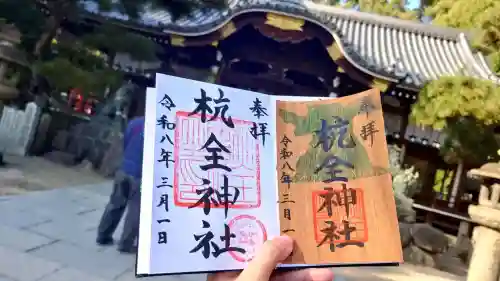 奉拝
杭全神社
令和八年三月一日
奉拝
杭全神社
令和八年三月一